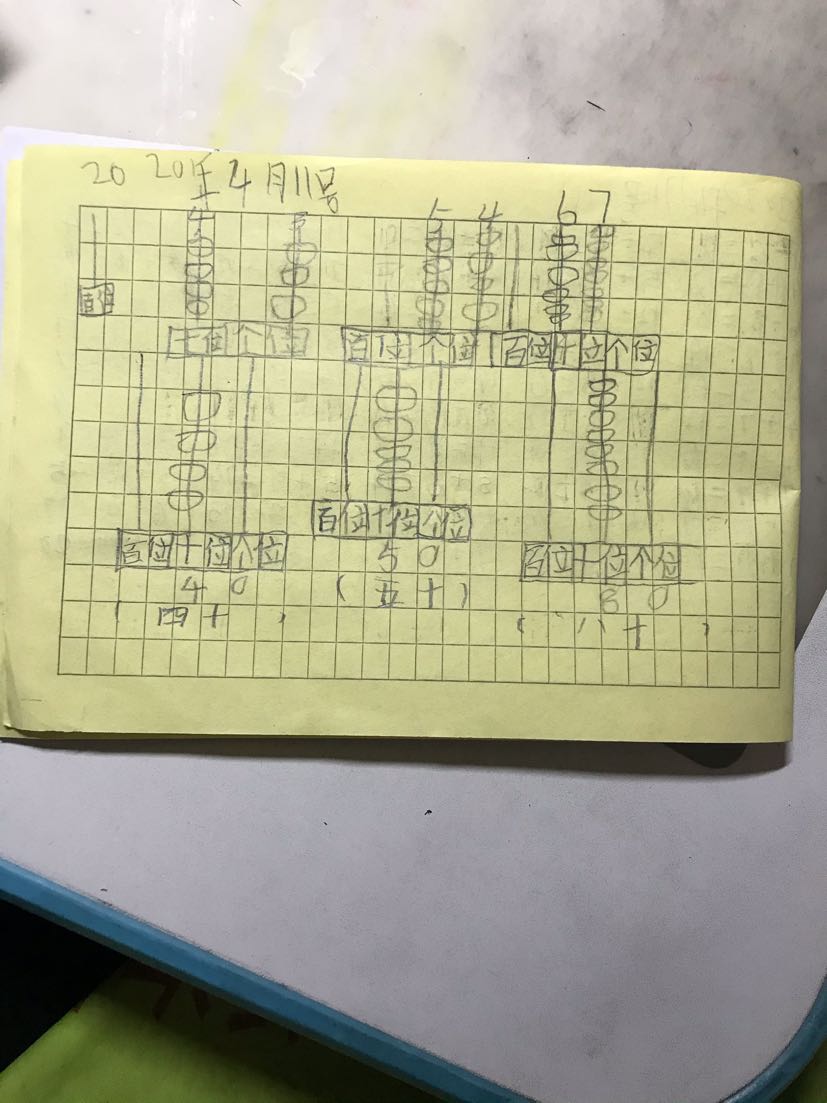 2020年4月11号
4 3 5 4 6 7
百位
十位个位 百位 个位 百位十位个位
百位十位个位
百位十位个位 百位十位个位
5 0
4 0 8 0
(五十)
(四十)
(八十)